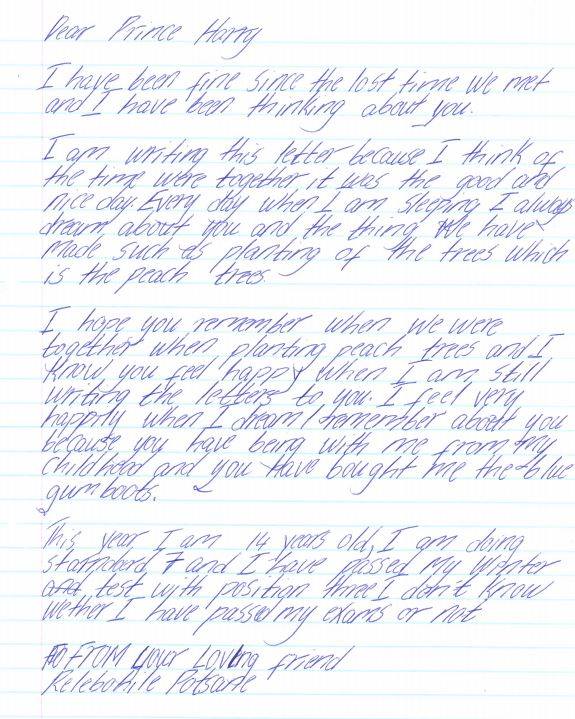 Dear Prince Harry
I have been fine since the last time we met
and I have been thinking about you.
I am writing this letter because I think of
the time were together it was the good and
nice day. Every day when I am sleeping I always
dream about you and the thing We have
made such as planting of the trees which
is the peach trees.
I hope you remember when we were
together when planting peach trees and I
know you feel happy when I am still
writing the letters to you. I feel very
happily when I dream/remember about you
because you have being with me from my
childhood and you Have bought me the blue
gumboots.
This year I am 14 years old, I am doing
standard 7 and I have passed my Winter
and test with position three I don't know
wether I have passed my exams or not
FROM your Loving friend
Relebohile Potsane